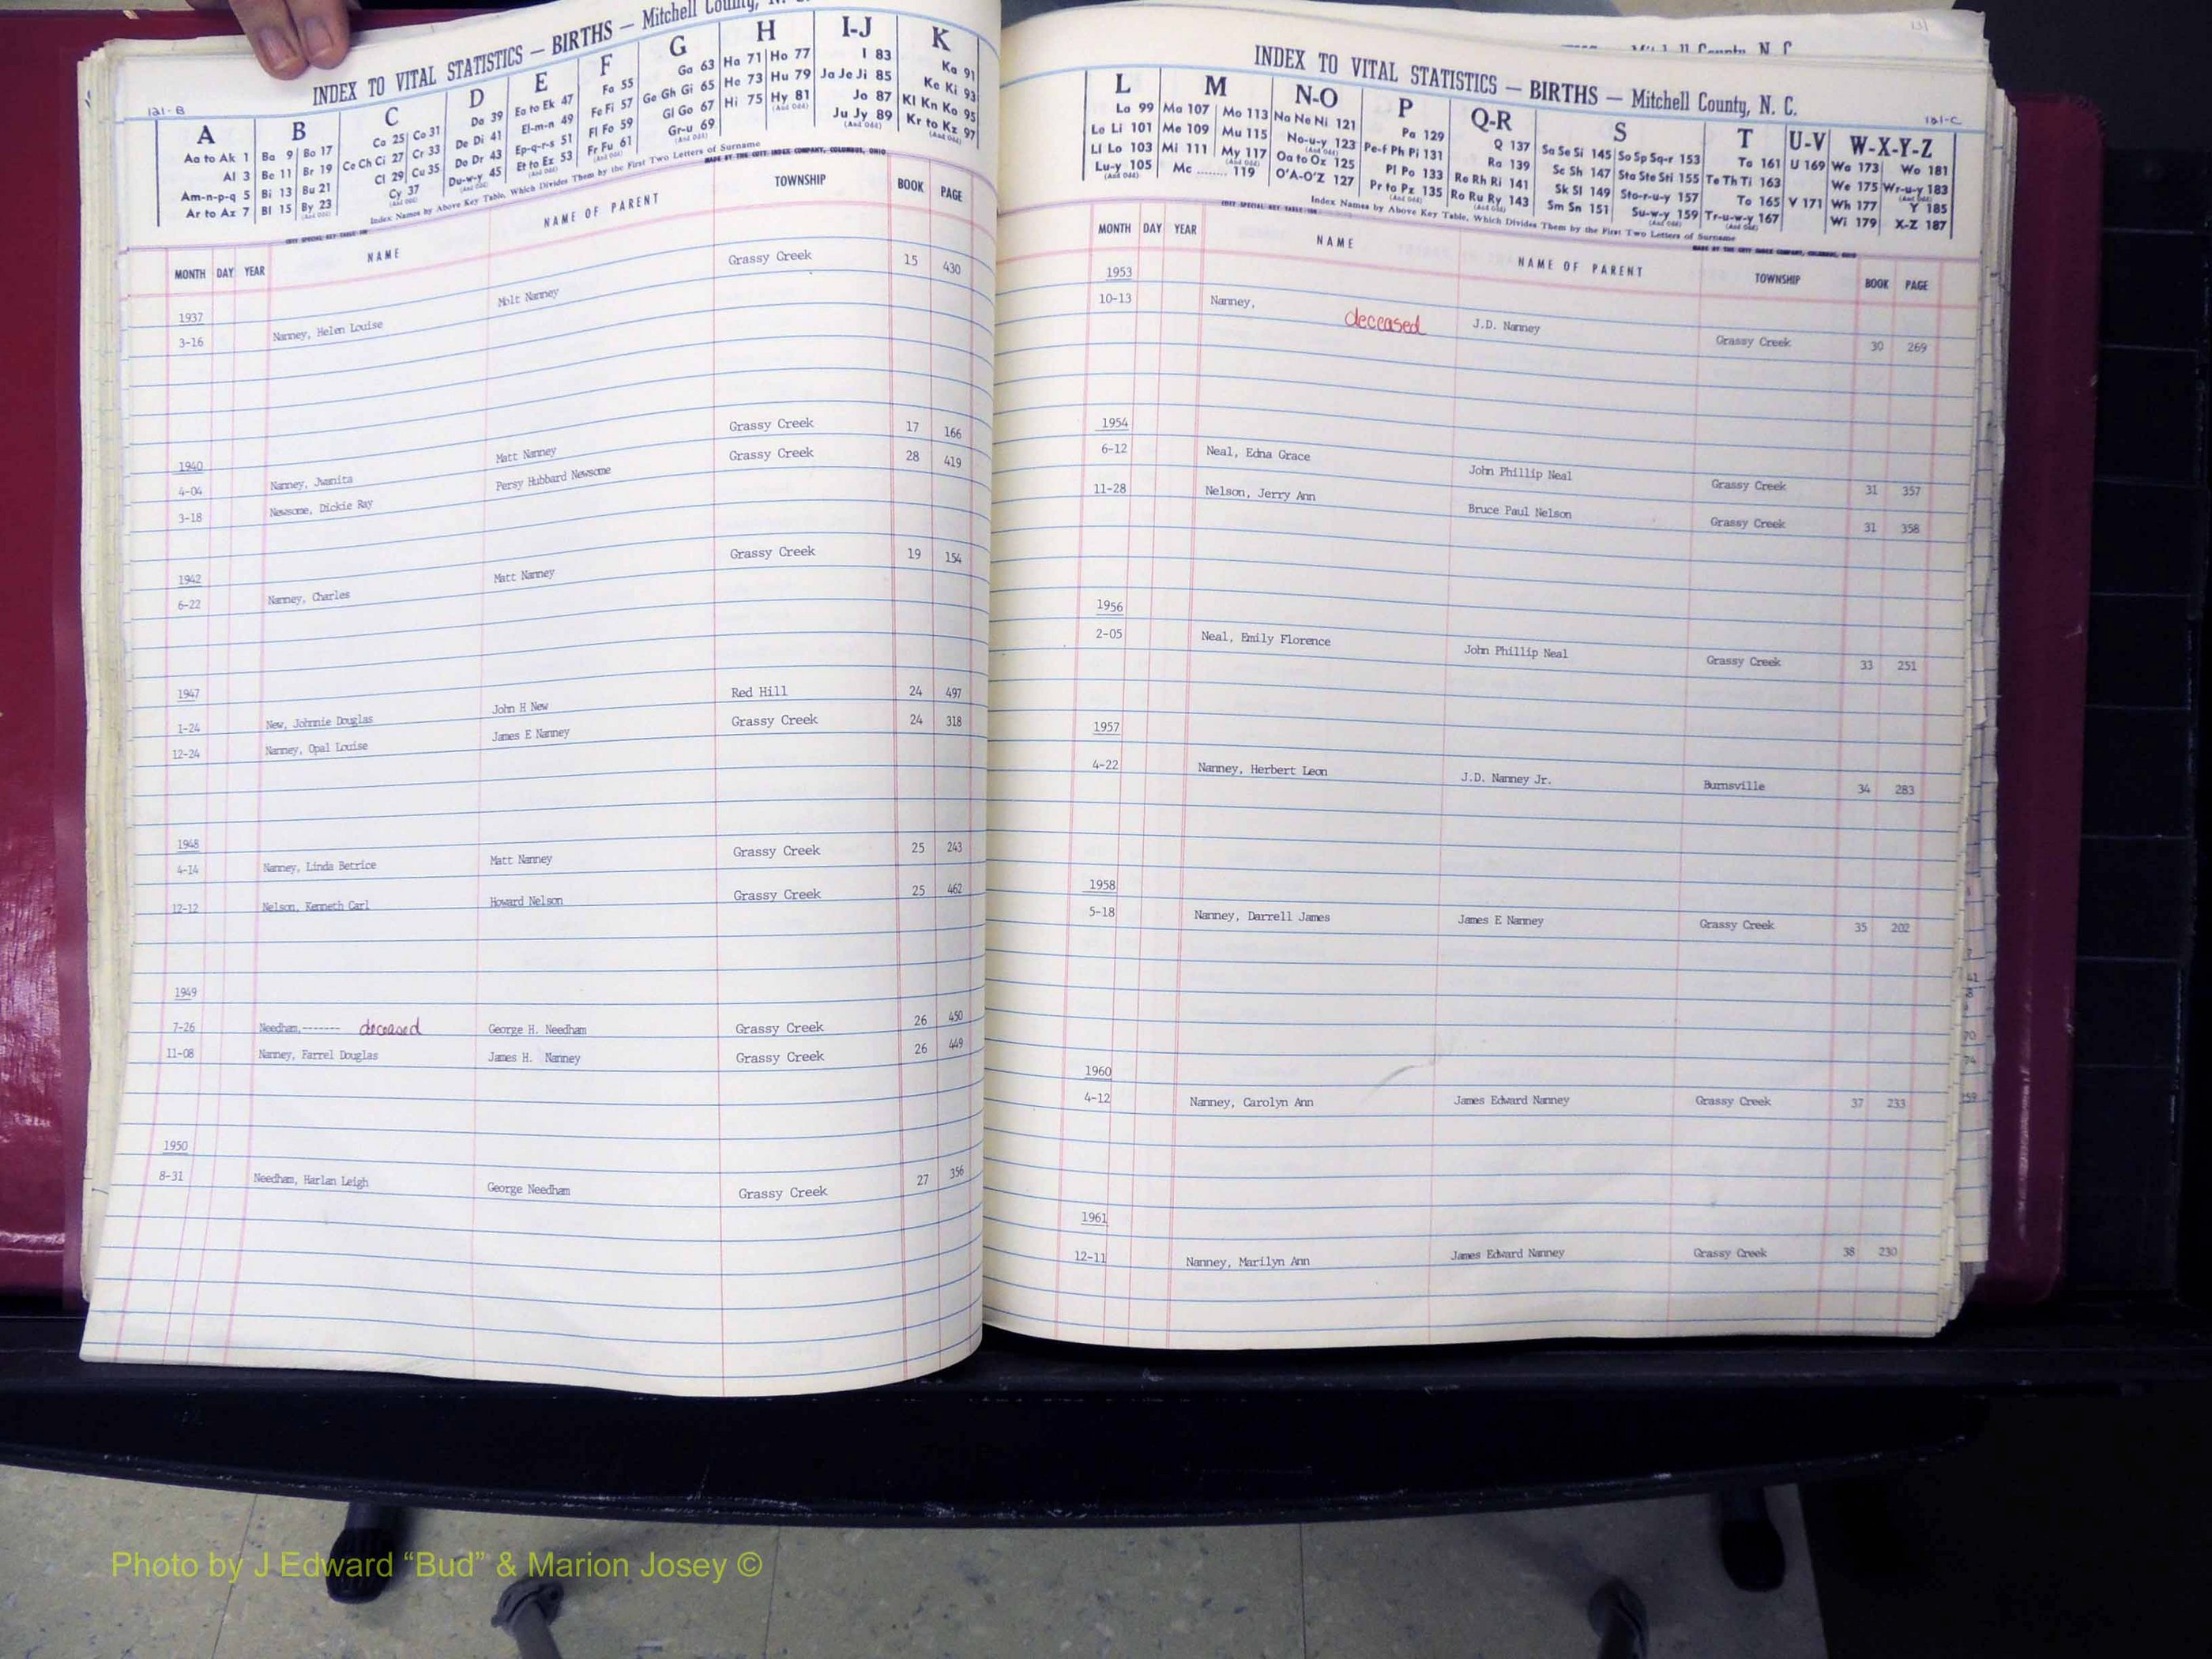 INDEX TO VITAL STATISTICS — BIRTHS — Mitchell County, N. C.
121-B
A B C D E F G H I-J K
Aa to Ak 1
Al 3
Am-n-p-q 5
Ar to Az 7
Ba 9 Bo 17
Be 11 Br 19
Bi 13 Bu 21
Bl 15 By 23
(And Odd)
Ca 25 Co 31
Ce Ch Ci 27 Cr 33
Cl 29 Cu 35
Cy 37
(And Odd)
Da 39
De Di 41
Do Dr 43
Du-w-y 45
(And Odd)
Ea to Ek 47
El-m-n 49
Ep-q-r-s 51
Et to Ez 53
(And Odd)
Fa 55
Fe Fi 57
Fl Fo 59
Fr Fu 61
(And Odd)
Ga 63
Ge Gh Gi 65
Gl Go 67
Gr-u 69
(And Odd)
Ha 71 Ho 77
He 73 Hu 79
Hi 75 Hy 81
(And Odd)
I 83
Ja Je Ji 85
Jo 87
Ju Jy 89
(And Odd)
Ka 91
Ke Ki 93
Kl Kn Ko 95
Kr to Kz 97
(And Odd)
Index Names by Above Key Table, Which Divides Them by the First Two Letters of Surname
MADE BY THE COTT INDEX COMPANY, COLUMBUS, OHIO
MONTH DAY YEAR NAME NAME OF PARENT TOWNSHIP BOOK PAGE
1937
3-16 Nanney, Helen Louise Molt Nanney Grassy Creek 15 430
1940
4-04 Nanney, Jwanita Matt Nanney Grassy Creek 17 166
3-18 Newsome, Dickie Ray Persy Hubbard Newsome Grassy Creek 28 419
1942
6-22 Nanney, Charles Matt Nanney Grassy Creek 19 154
1947
1-24 New, Johnnie Douglas John H New Red Hill 24 497
12-24 Nanney, Opal Louise James E Nanney Grassy Creek 24 318
1948
4-14 Nanney, Linda Betrice Matt Nanney Grassy Creek 25 243
12-12 Nelson, Kenneth Carl Howard Nelson Grassy Creek 25 462
1949
7-26 Needham,------- deceased George H. Needham Grassy Creek 26 450
11-08 Nanney, Farrel Douglas James H. Nanney Grassy Creek 26 449
1950
8-31 Needham, Harlan Leigh George Needham Grassy Creek 27 356
131
INDEX TO VITAL STATISTICS — BIRTHS — Mitchell County, N. C.
121-C
L M N-O P Q-R S T U-V W-X-Y-Z
La 99
Le Li 101
Ll Lo 103
Lu-y 105
(And Odd)
Ma 107 Mo 113
Me 109 Mu 115
Mi 111 My 117
(And Odd)
Mc ........ 119
Na Ne Ni 121
No-u-y 123
(And Odd)
Oa to Oz 125
O'A-O'Z 127
Pa 129
Pe-f Ph Pi 131
Pl Po 133
Pr to Pz 135
(And Odd)
Q 137
Ra 139
Re Rh Ri 141
Ro Ru Ry 143
(And Odd)
Sa Se Si 145 So Sp Sq-r 153
Sc Sh 147 Sta Ste Sti 155
Sk Sl 149 Sto-r-u-y 157
Sm Sn 151 Su-w-y 159
(And Odd)
Ta 161
Te Th Ti 163
To 165
Tr-u-w-y 167
(And Odd)
U 169
V 171
Wa 173 Wo 181
We 175 Wr-u-y 183
(And Odd)
Wh 177 Y 185
Wi 179 X-Z 187
Index Names by Above Key Table, Which Divides Them by the First Two Letters of Surname
MADE BY THE COTT INDEX COMPANY, COLUMBUS, OHIO
MONTH DAY YEAR NAME NAME OF PARENT TOWNSHIP BOOK PAGE
1953
10-13 Nanney, deceased J.D. Nanney Grassy Creek 30 269
1954
6-12 Neal, Edna Grace John Phillip Neal Grassy Creek 31 357
11-28 Nelson, Jerry Ann Bruce Paul Nelson Grassy Creek 31 358
1956
2-05 Neal, Emily Florence John Phillip Neal Grassy Creek 33 251
1957
4-22 Nanney, Herbert Leon J.D. Nanney Jr. Burnsville 34 283
1958
5-18 Nanney, Darrell James James E Nanney Grassy Creek 35 202
1960
4-12 Nanney, Carolyn Ann James Edward Nanney Grassy Creek 37 233
1961
12-11 Nanney, Marilyn Ann James Edward Nanney Grassy Creek 38 230
Photo by J Edward “Bud” & Marion Josey ©